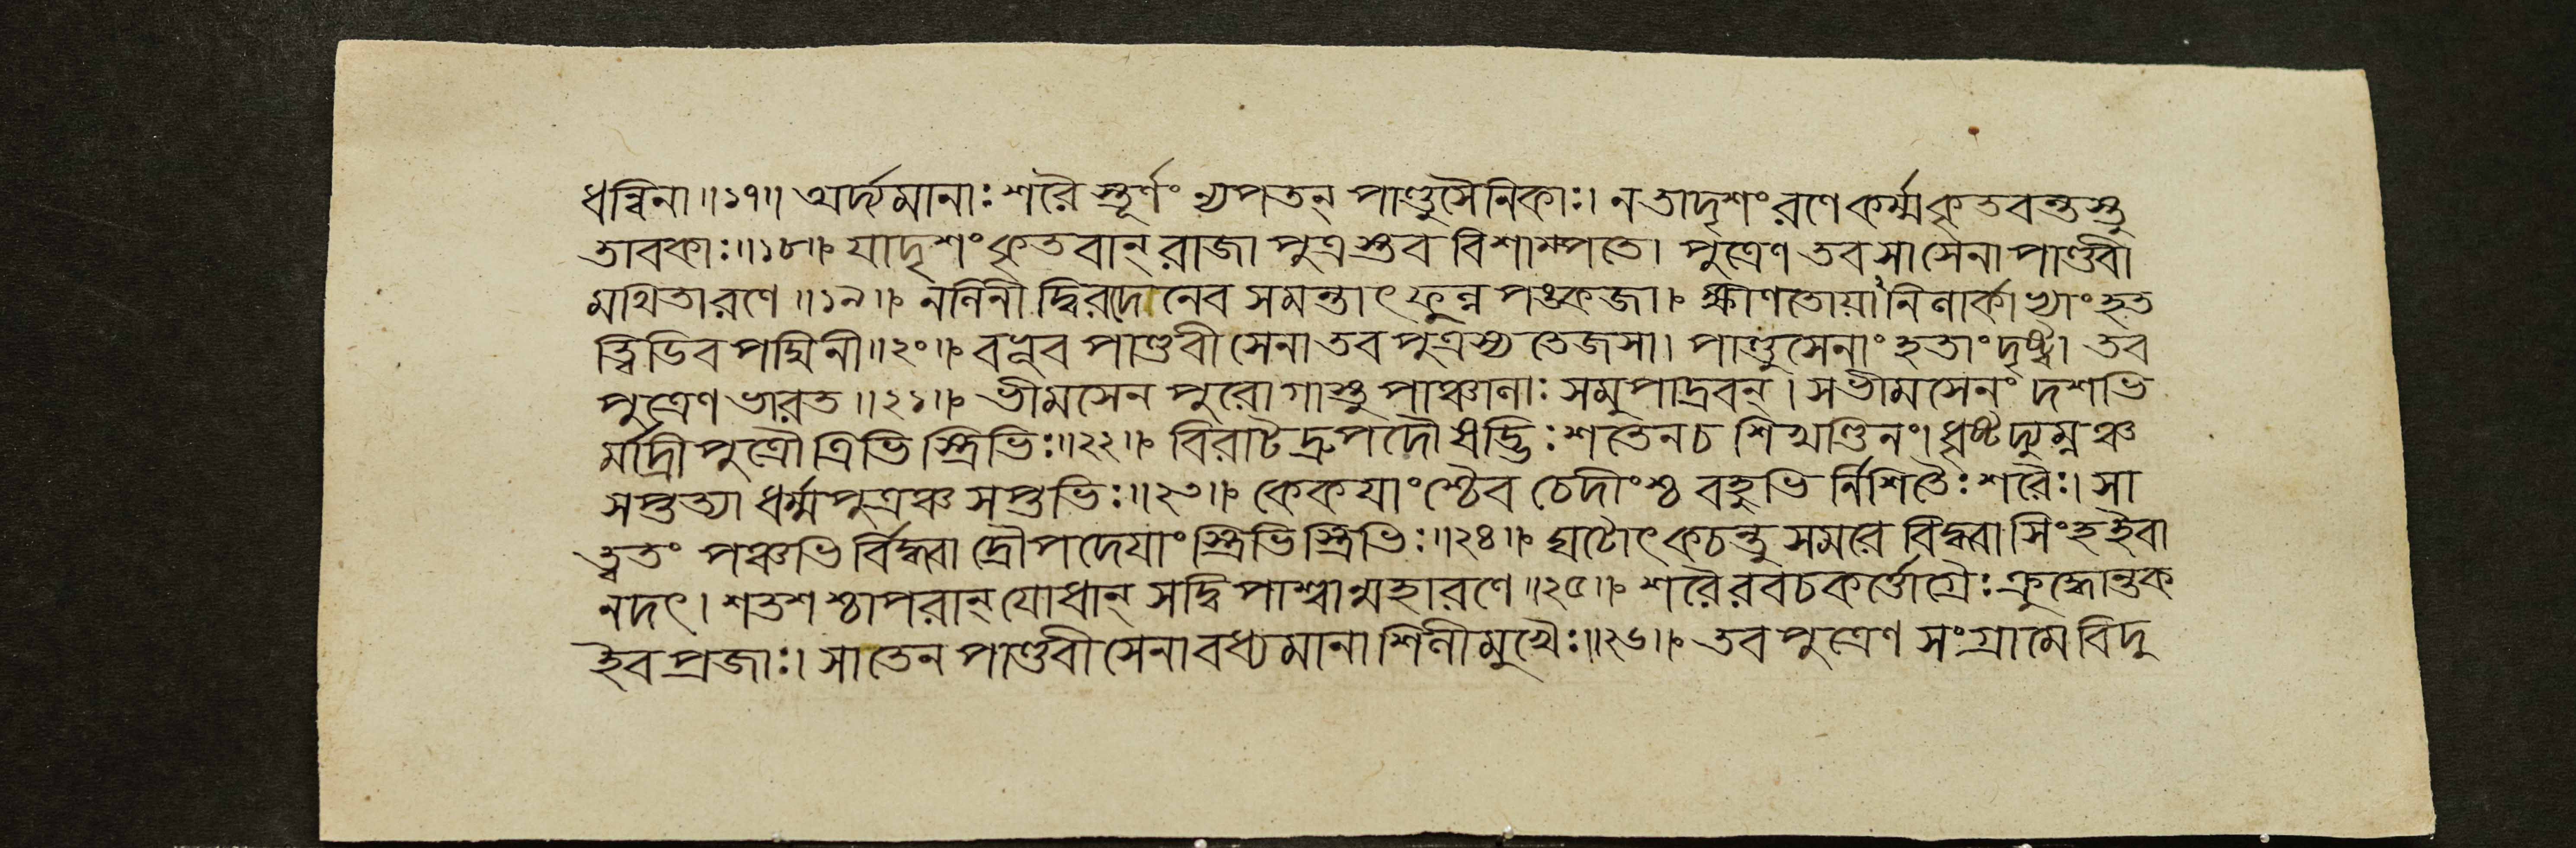 ধন্বিনা॥১৭॥ অর্দ্দ্যমানাঃ শরৈ স্তূর্ণং ন্যপতন্ পাণ্ডুসৈনিকাঃ। ন তাদৃশং রণে কর্ম্ম কৃতবন্তস্তু
তাবকাঃ॥১৮॥ যাদৃশং কৃতবান্ রাজা পুত্রস্তব বিশাম্পতে। পুত্রেণ তব সা সেনা পাণ্ডবী
মথিতা রণে॥১৯॥ নলিনী দ্বিরদেনেব সমন্তাৎ ফুল্ল পঙ্কজা। ক্ষীণতোয়া নিলার্কাভ্যাং হত
ত্বিডিব পদ্মিনী॥২০॥ বভূব পাণ্ডবী সেনা তব পুত্রস্য তেজসা। পাণ্ডুসেনাং হতাং দৃষ্ট্বা তব
পুত্রেণ ভারত॥২১॥ ভীমসেন পুরোগাস্তু পাঞ্চালাঃ সমুপাদ্রবন্। স ভীমসেনং দশভি
র্মাদ্রী পুত্রৌ ত্রিভি স্ত্রিভিঃ॥২২॥ বিরাট দ্রুপদৌ ষড্ভিঃ শতেন চ শিখণ্ডিনং। ধৃষ্টদ্যুম্নঞ্চ
সপ্তত্যা ধর্ম্মপুত্রঞ্চ সপ্তভিঃ॥২৩॥ কেকয়াংশ্চৈব চেদীংশ্চ বহুভি র্নিশিতৈঃ শরৈঃ। সা
ত্বতং পঞ্চভি র্বিদ্ধ্বা দ্রৌপদেয়াং স্ত্রিভি স্ত্রিভিঃ॥২৪॥ ঘটোৎকচন্তু সমরে বিদ্ধ্বা সিংহ ইবা
নদৎ। শতশ শ্চাপরান্ যোধান্ সদ্বিপাশ্বান্মহারণে॥২৫॥ শরৈরবচকর্ত্তোগ্রৈঃ ক্রুদ্ধোন্তক
ইব প্রজাঃ। সা তেন পাণ্ডবী সেনা বধ্যমানা শিলীমুখৈঃ॥২৬॥ তব পুত্রেণ সংগ্রামে বিদু